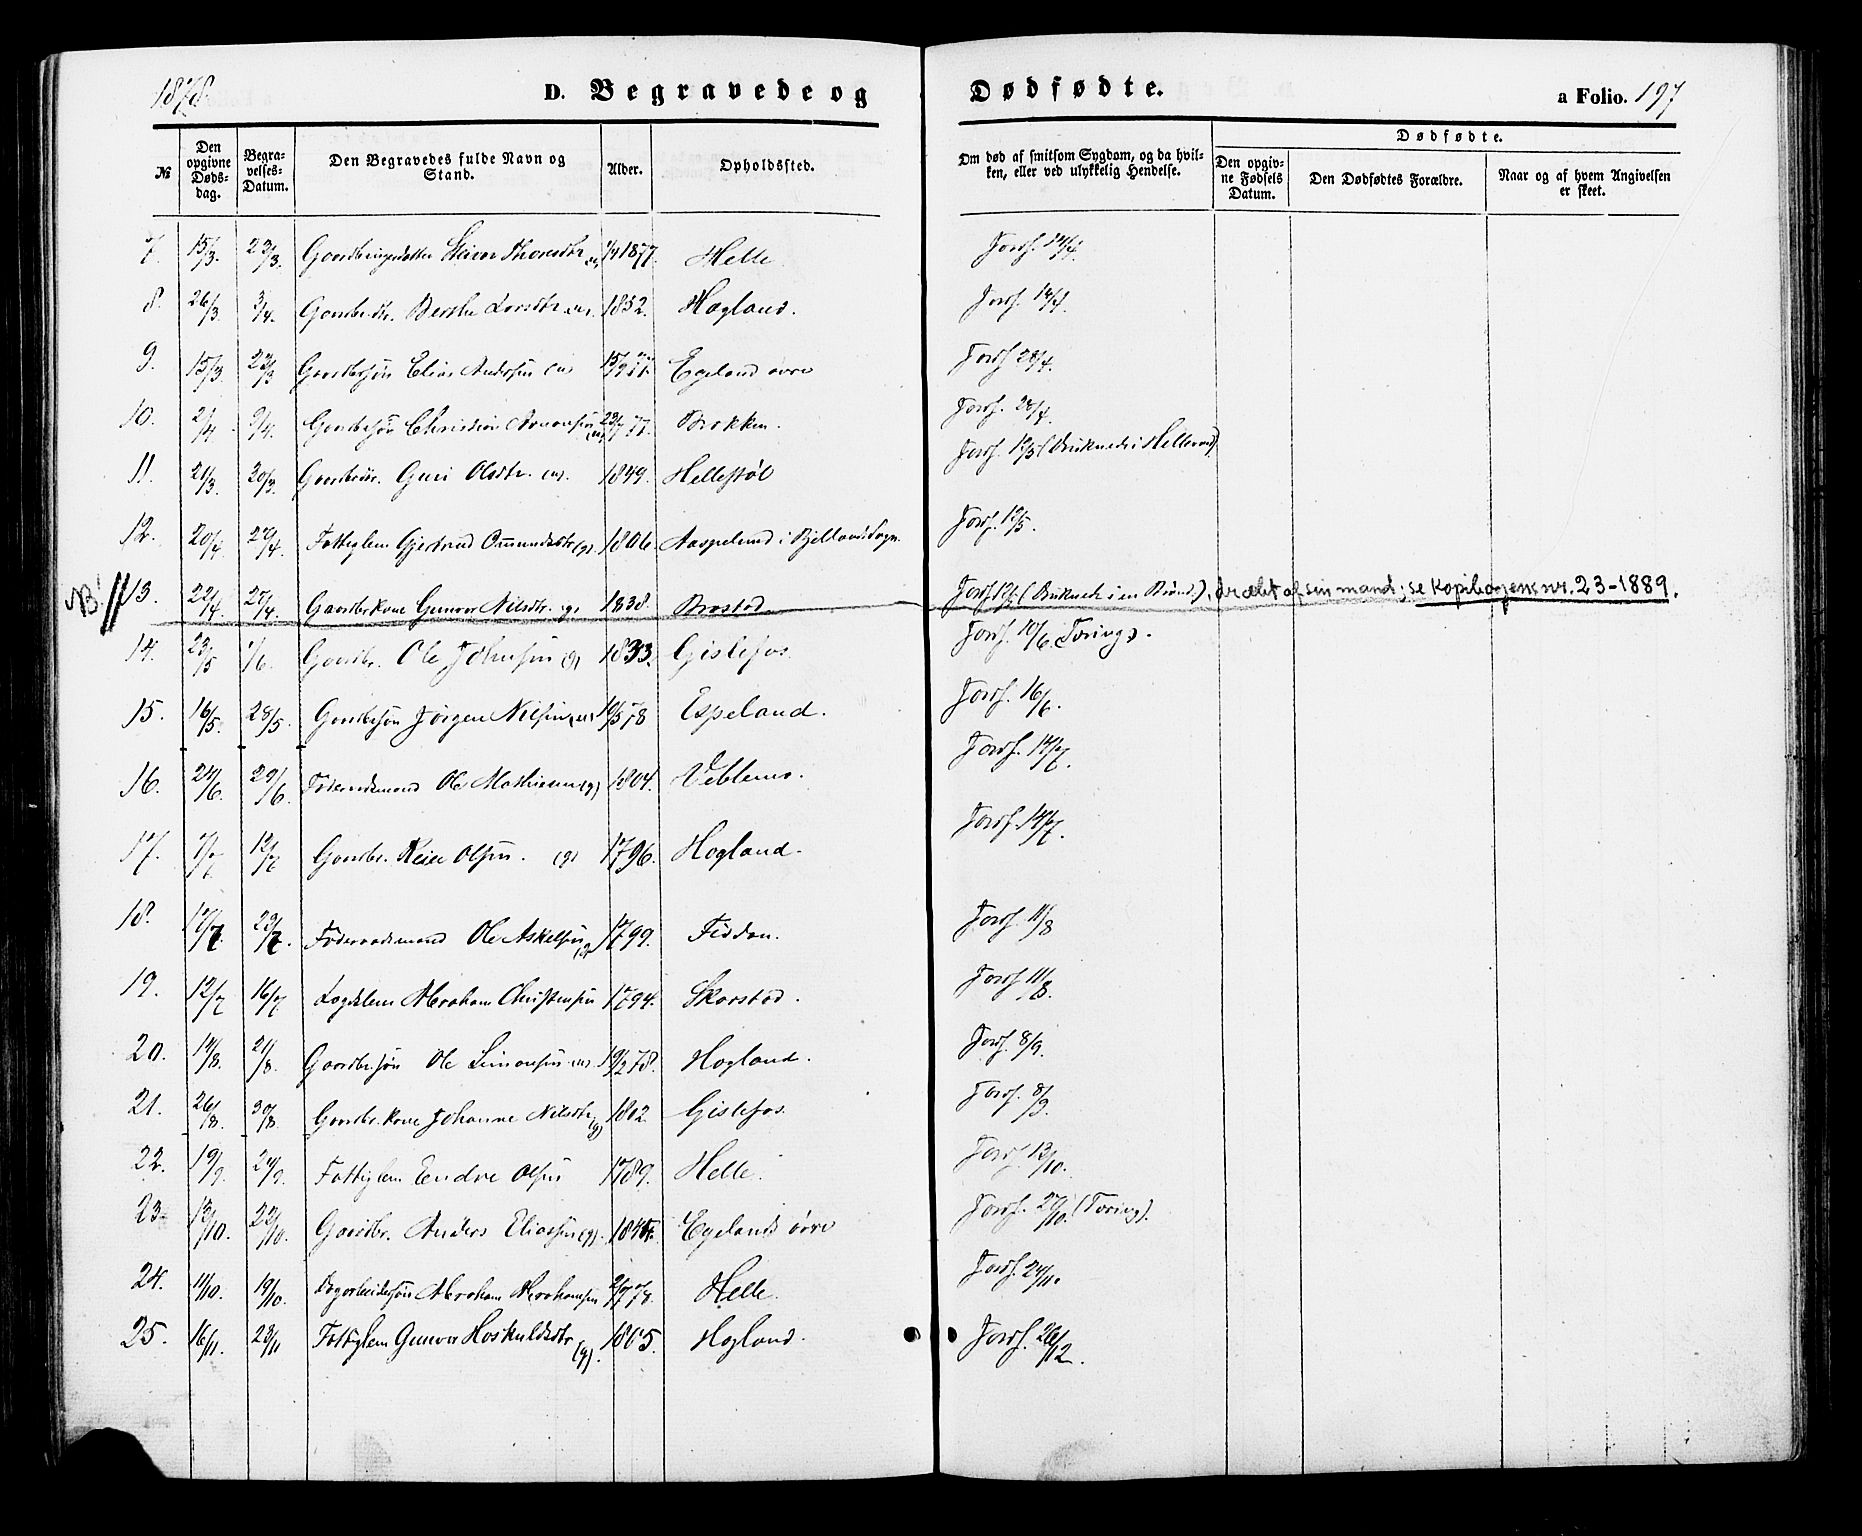 1878.
D. Begravede og Dødfødte.
a Folio. 197
№
Den opgivne Døds-dag.
Begra-velses-Datum.
Den Begravedes fulde Navn og Stand.
Alder.
Opholdssted.
Om død af smitsom Sygdom, og da hvil-ken, eller ved ulykkelig Hendelse.
Dødfødte.
Den opgiv-ne Fødsels Datum.
Den Dødfødtes Forældre.
Naar og af hvem Angivelsen er skeet.
7. 15/3. 23/3. 1877. Helle Jordf. 14/4.
8. 26/3 3/4. Gaardbr.dtr. Berthe Larsdtr. 1852. Hogland. Jordf. 14/4.
9. 15/3. 23/3 Gaardbrsøn Elias Andersen Egeland øvre Jordf 28/4.
10. 2/4 9/4. Gaardbrsøn Christian Brokken. Jordf. 28/4.
11. 21/3. 30/3. Guri Olsdtr. 1849. Hellestøl Jordf. 12/5
12. 20/4. 27/4. Fattiglem Gjertrud Omundsdtr (g) 1806. Aaspelund i Bjelland Sogn. Jordf. 12/5.
NB! 13. 22/4. 27/4. Gaardbrkone Gunvor Nilsdtr. (g) 1838. Brostad Jordf 12/5 dræbt af sin mand; se kopibogens nr. 23-1889.
14. 23/5 1/6. Gaardbr. Ole Johnsen (g) 1833. Gislefos. Jordf. 10/6. (Tvring).
15. 16/5. 28/5. Gaardbrsøn Jørgen Nilsen 10/5 78 Espeland. Jordf. 16/6.
16. 24/6. 29/6. Føderaadsmand Ole Mathiesen (g) 1804. Veblemo. Jordf. 14/7.
17. 7/7 12/7 Gaardbr. Reier Olsen. (g) 1796. Hogland. Jordf. 14/7.
18. 17/7. 23/7. Føderaadsmand Ole Askelsen (g) 1799. Fiddan. Jordf. 11/8
19. 12/7 16/7 Lægdslem Abraham Christensen 1794. Skarstad. Jordf 11/8.
20. 14/8. 21/8. Gaardbr.søn Ole Simonsen 19/2 78. Hogland. Jordf. 8/9.
21. 26/8. 30/8. Gaardbr.kone Johanne Nilsdtr (g) 1802. Gislefos. Jordf. 8/9.
22. 19/9. 24/9. Fattiglem Endre Olsen 1789. Helle. Jordf. 13/10.
23. 13/10. 22/10. Gaardbr. Anders Eliassen (g). Egelands øvre Jordf. 27/10. (Tvring).
24. 11/10. 19/10. Abraham Abrahamsen Helle. Jordf. 24/11.
25. 16/11. 23/11 Fattiglem Gunvor Hoskuldsdtr (g). 1805. Hogland. Jordf. 26/12.